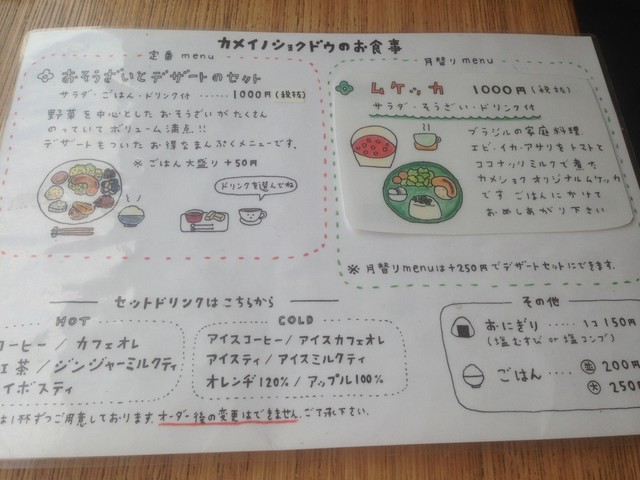 カメイノショクドウのお食事
定番menu
おそうざいとデザートのセット
サラダ・ごはん・ドリンク付 ‥‥‥ 1000円(税抜)
野菜を中心とした おそうざいがたくさん
のっていて ボリューム満点!!
デザートもついた お得なまんぷくメニューです。
※ ごはん大盛り +50円
ドリンクを選んでね
月替りmenu
ムケッカ 1000円(税抜)
サラダ・そうざい・ドリンク付
ブラジルの家庭料理
エビ・イカ・アサリをトマトと
ココナッツミルクで煮た
カメショクオリジナルムケッカ
です ごはんにかけて
おめしあがり下さい
※ 月替りmenuは+250円でデザートセットにできます。
セットドリンクはこちらから
HOT
コーヒー / カフェオレ
紅茶 / ジンジャーミルクティ
イボスティ
COLD
アイスコーヒー / アイスカフェオレ
アイスティ / アイスミルクティ
オレンヂ120% / アップル100%
は1杯ずつご用意しております。オーダー後の変更はできません。ご了承下さい。
その他
おにぎり ‥‥‥ 1コ 150円
(塩むすび or 塩コンブ)
ごはん ‥‥ 並 200円
大 250